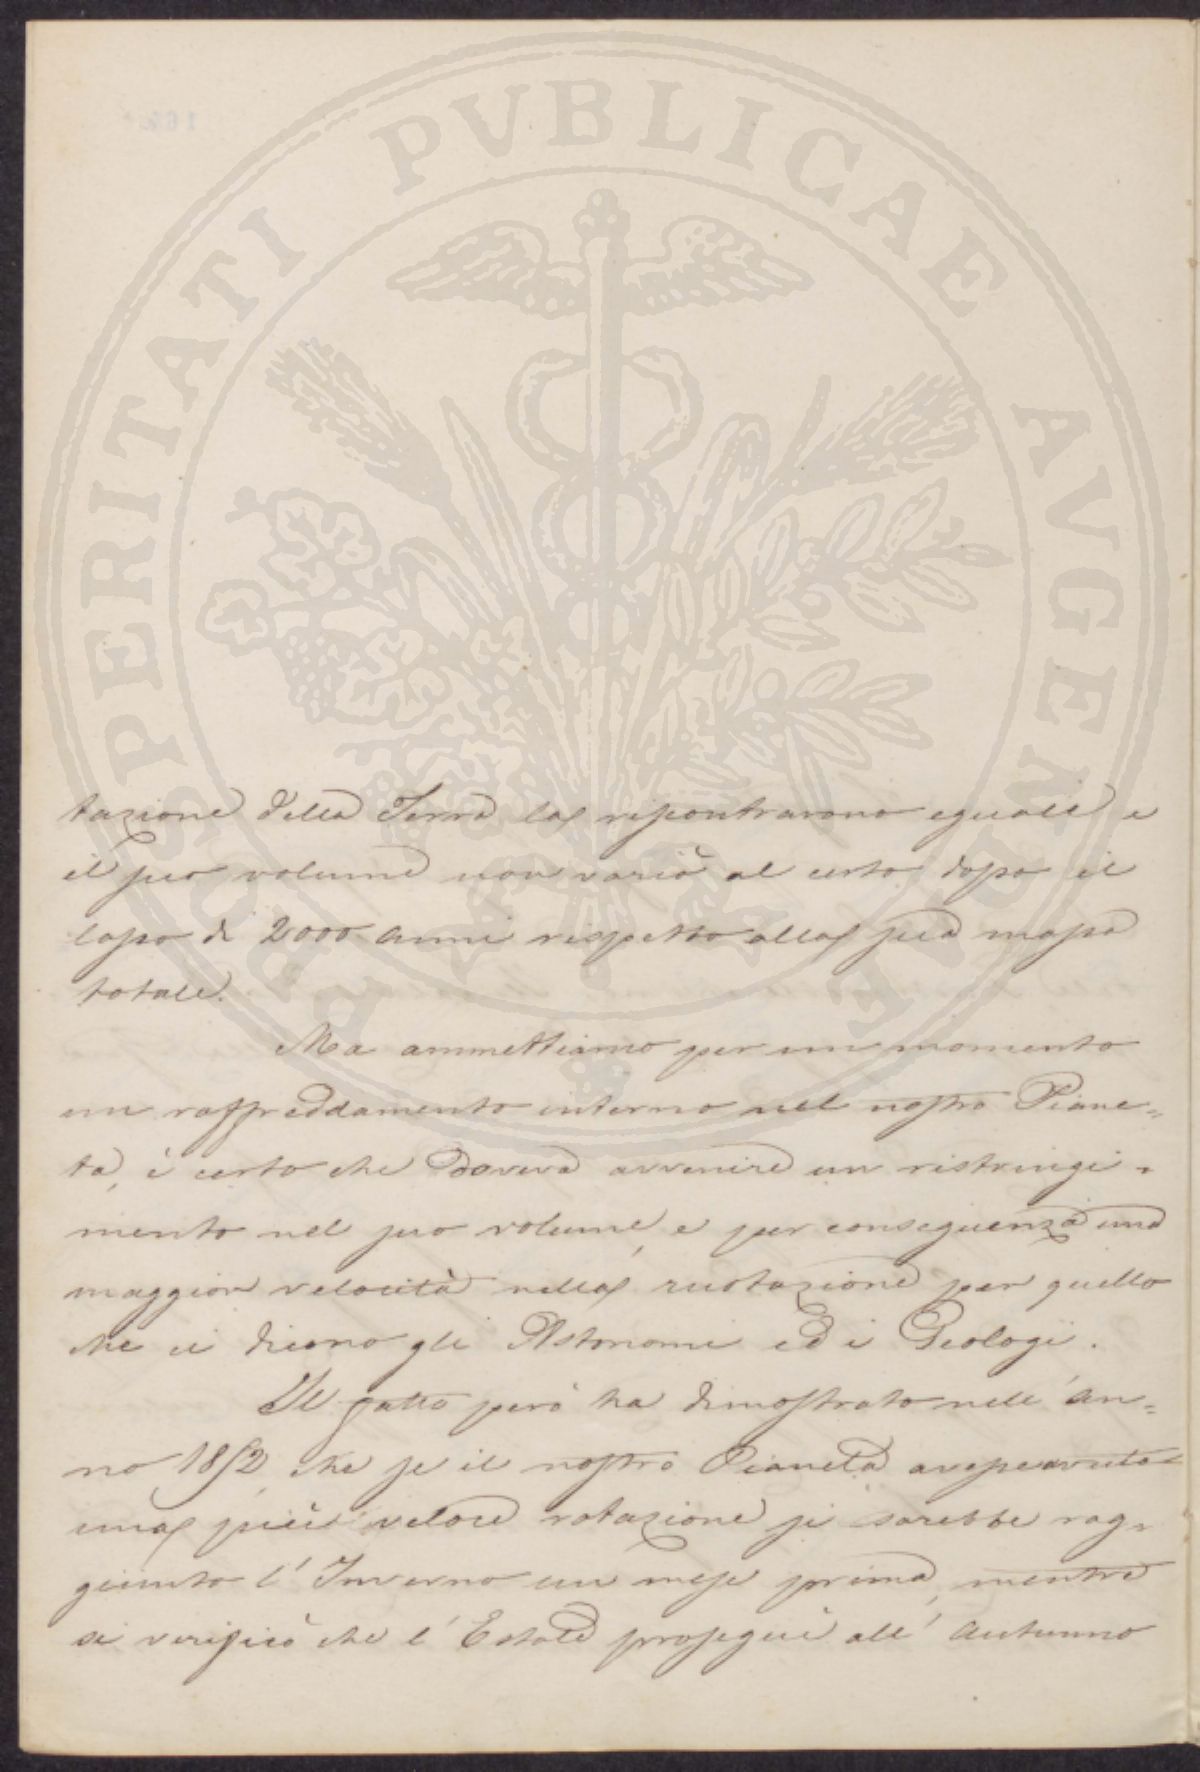 PROSPERITATI PVBLICAE AVGENDAE
tazione della Terra la riscontrarono eguale e
il suo volume non variò al certo dopo il
lapso di 2000 anni rispetto alla sua massa
totale.
Ma ammettiamo per un momento
un raffreddamento interno nel nostro Piane=
ta, è certo che doveva avvenire un ristringi=
mento nel suo volume, e per conseguenza una
maggior velocità nella ruotazione per quello
che ci dicono gli Astronomi ed i Geologi.
Il fatto però ha dimostrato nell'an=
no 1852, che se il nostro Pianeta avesse avuto
una più veloce rotazione si sarebbe rag=
giunto l'Inverno un mese prima, mentre
si verificò che l'Estate proseguì all'Autunno